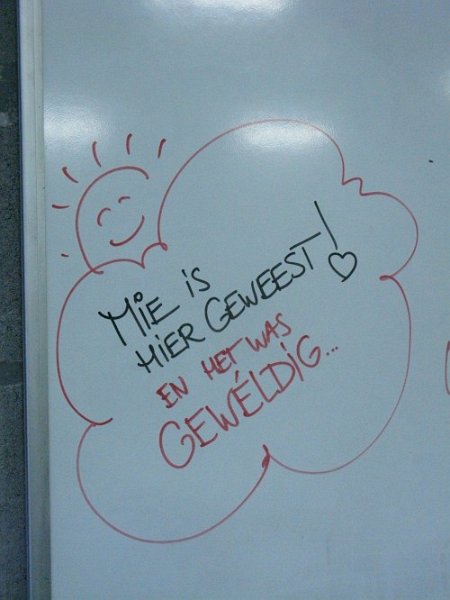 MiE iS
HiER GEWEEST!
EN HET WAS
GEWÉLDiG...